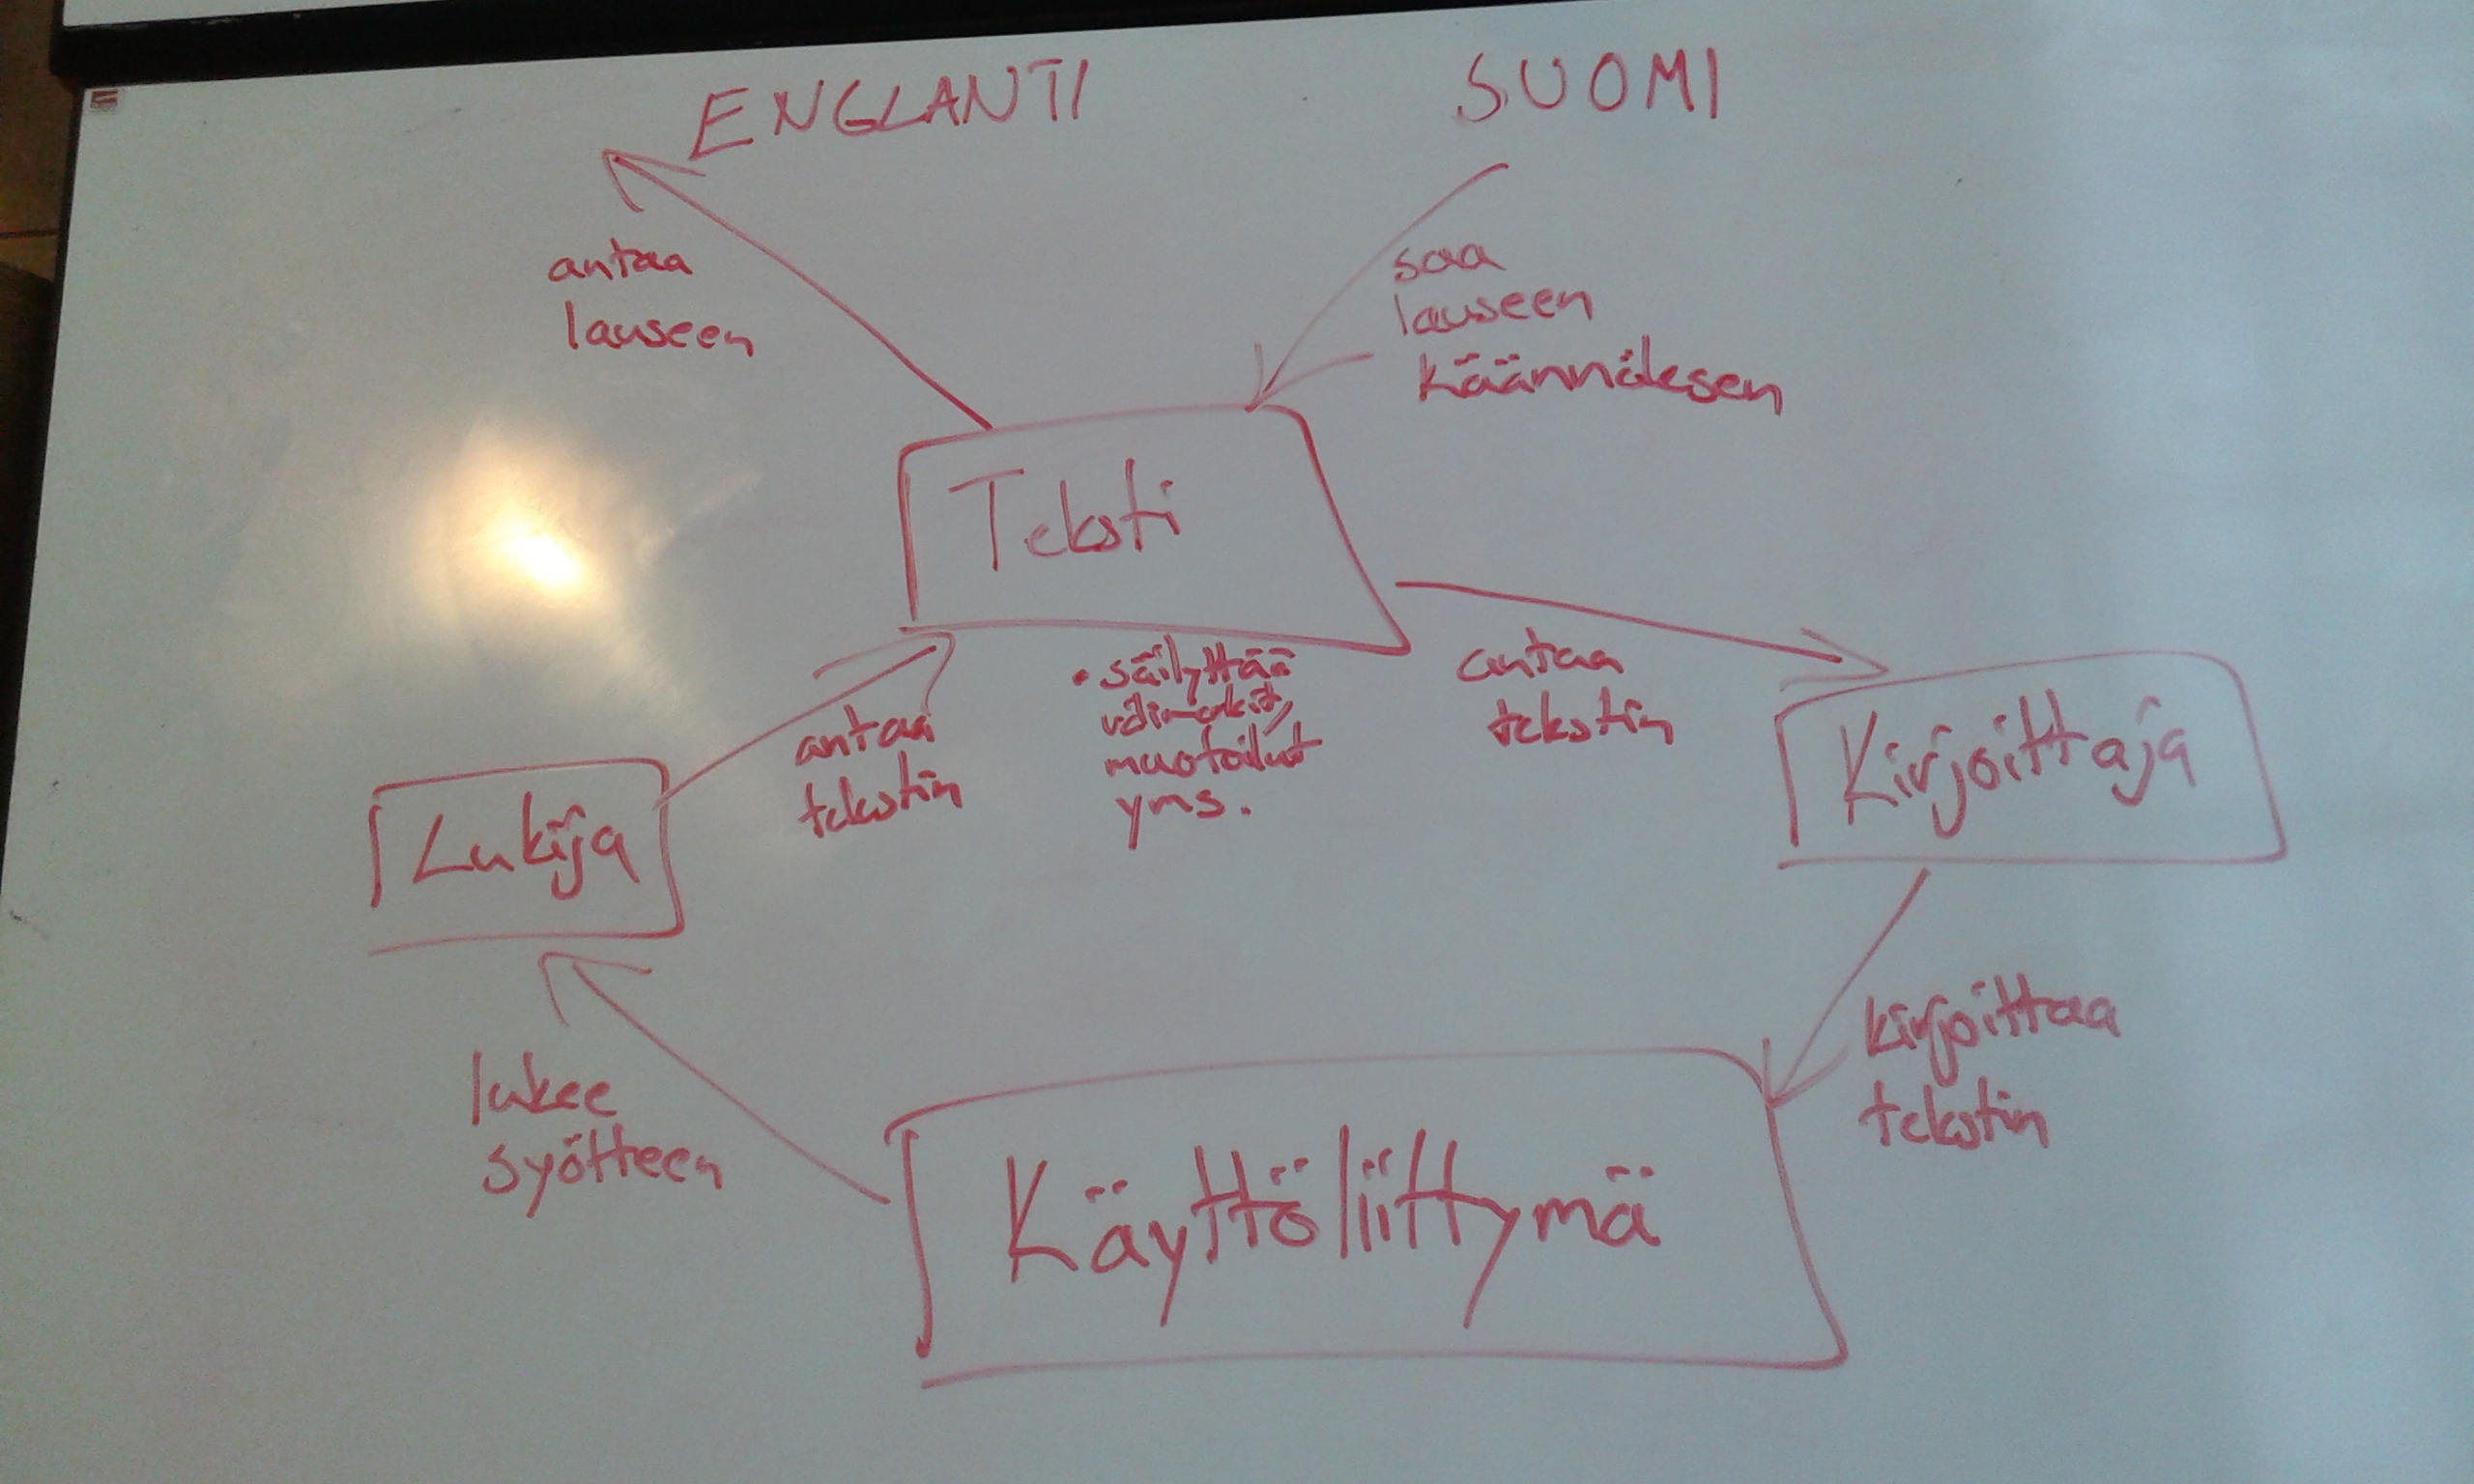 ENGLANTI
SUOMI
antaa
lauseen
saa
lauseen
käännöksen
Teksti
• säilyttää
välimerkit,
muotoilut
yms.
antaa
tekstin
antaa
tekstin
Kirjoittaja
Lukija
lukee
syötteen
kirjoittaa
tekstin
Käyttöliittymä